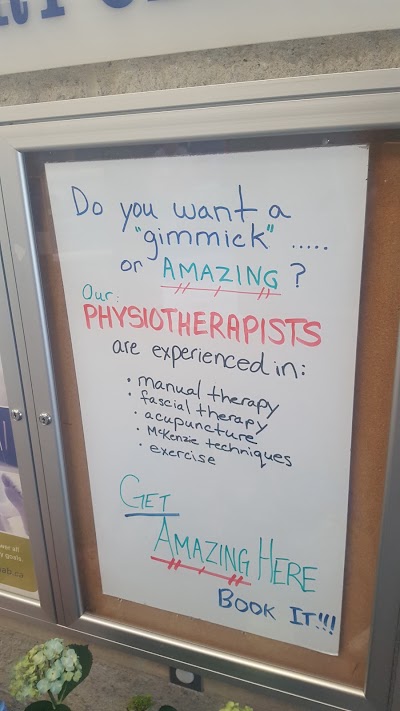 Do you want a
"gimmick" .....
or AMAZING ?
Our:
PHYSIOTHERAPISTS
are experienced in:
• manual therapy
• fascial therapy
• acupuncture
• McKenzie techniques
• exercise
GET
AMAZING HERE
BOOK IT!!!